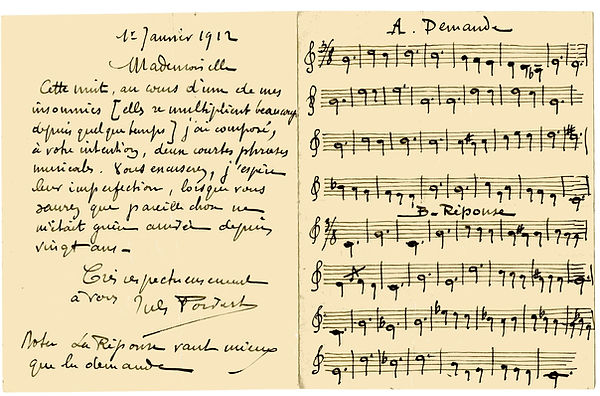 1er Janvier 1912
Mademoiselle
Cette nuit, au cours d'une de mes
insomnies [elles se multiplient beaucoup
depuis quelque temps] j'ai composé,
à votre intention, deux courtes phrases
musicales. Vous excuserez, j'espère
leur imperfection, lorsque vous
saurez que pareille chose ne
m'était guère arrivée depuis
vingt ans -
Très respectueusement
à vous Jules
Nota La Réponse vaut mieux
que la demande
A. Demande
3/8
B- Réponse
3/8